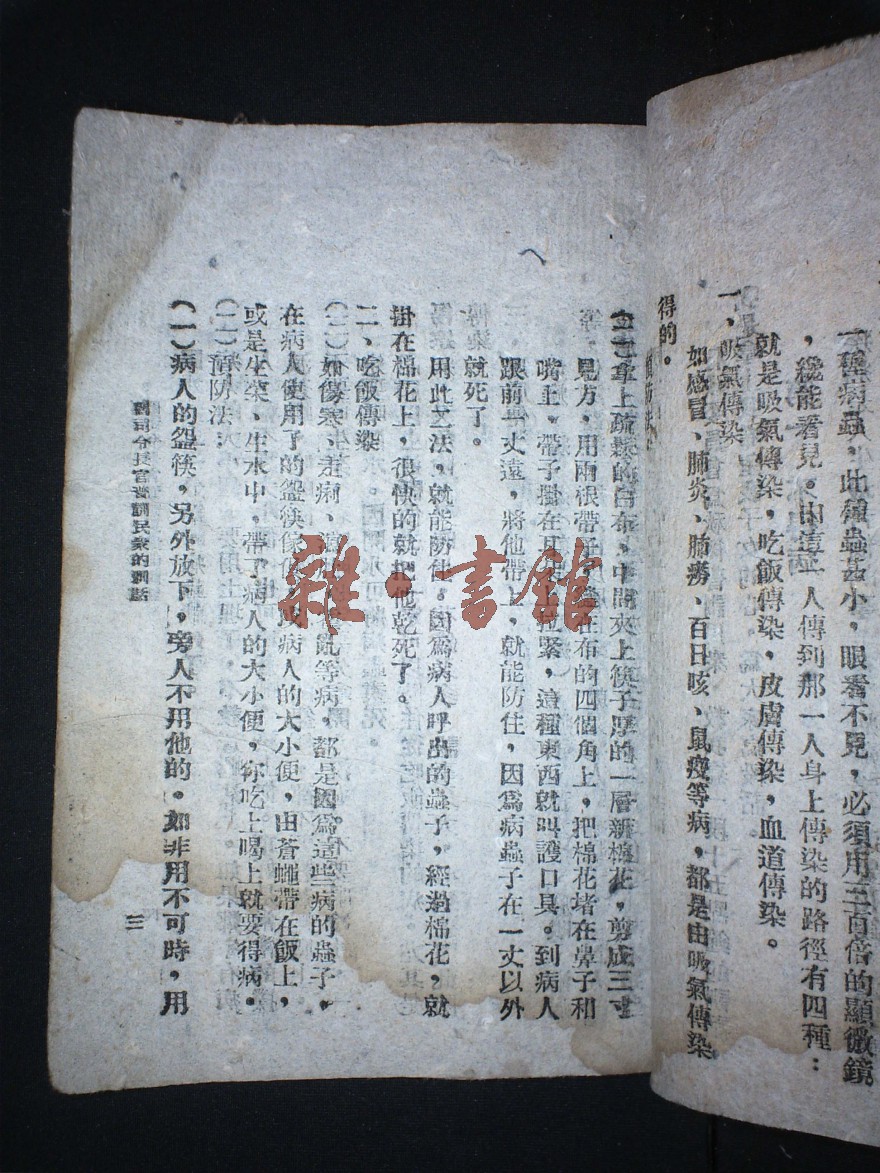 一種病蟲，此種蟲甚小，眼看不見，必須用三百倍的顯微鏡
，纔能看見。由這一人傳到那一人身上傳染的路徑有四種：
就是吸氣傳染，吃飯傳染，皮膚傳染，血道傳染。
一、吸氣傳染
如感冒、肺炎、肺癆、百日咳、鼠疫等病，都是由吸氣傳染
得的。
拿上疏鬆的白布，中間夾上筷子厚的一層新棉花，剪成三寸
見方，用兩根帶子，在布的四個角上，把棉花堵在鼻子和
嘴上，帶子掛在緊，這種東西就叫護口具。到病人
跟前一丈遠，將他帶上，就能防住，因爲病蟲子在一丈以外
就死了。
用此之法，就能防住。因爲病人呼出的蟲子，經過棉花，就
掛在棉花上，很快的就把他乾死了。
二、吃飯傳染
（一）如傷寒、赤痢、亂等病，都是因爲這些病的蟲子，
在病人使用了的盌筷病人的大小便，由蒼蠅帶在飯上，
或是生菜，生水中，帶了病人的大小便，你吃上喝上就要得病。
（二）預防法：
（一）病人的盌筷，另外放下，旁人不用他的。如非用不可時，用
司令長官民衆的講話
三
雜·書館